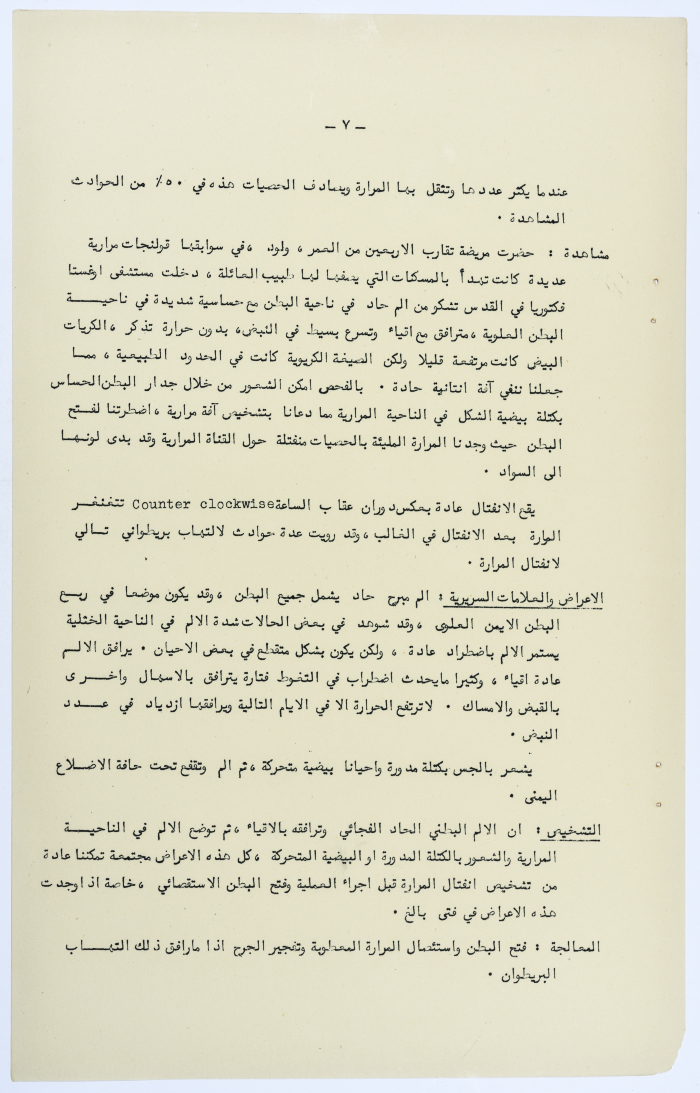 – ٧ –
عندما يكثر عددها وتثقل بها المرارة ويصادف الحصيات هذه في ٥٠٪ من الحوادث
المشاهدة ٠
مشاهدة : حضرت مريضة تقارب الاربعين من العمر ، ولود ، في سوابقها قولنجات مرارية
عديدة كانت تهدأ بالمسكنات التي يصفها لها طبيب العائلة ، دخلت مستشفى اوغستا
فكتوريا في القدس تشكو من الم حاد في ناحية البطن مع حساسية شديدة في ناحيـــة
البطن العلوية ، مترافق مع اقياء وتسرع بسيط في النبض، بدون حرارة تذكر ، الكريات
البيض كانت مرتفعة قليلا ولكن الصيغة الكريوية كانت في الحدود الطبيعية ، ممـا
جعلنا ننفي آفة انتانية حادة ٠ بالفحص امكن الشعور من خلال جدار البطن الحساس
بكتلة بيضية الشكل في الناحية المرارية مما دعانا بتشخيص آفة مرارية ، اضطرتنا لفــتح
البطن حيث وجدنا المرارة المليئة بالحصيات منفتلة حول القناة المرارية وقد بدى لونـهـا
الى السواد ٠
يقع الانفتال عادة بعكس دوران عقا ب الساعة Counter clockwise تتغنغـــر
المرارة بعد الانفتال في الغالب ، وقد رويت عدة حوادث لالتهاب بريطواني تــالي
لانفتال المرارة ٠
الاعراض والعلامات السريرية : الم مبرح حاد يشمل جميع البطن ، وقد يكون موضعا في ربـــع
البطن الايمن العلوى ، وقد شوهد في بعض الحالات شدة الالم في الناحية الخثلية
يستمر الالم باضطراد عادة ، ولكن يكون بشكل متقطع في بعض الاحيان ٠ يرافق الالــم
عادة اقياء ، وكثيرا ما يحدث اضطراب في التغوط فتارة يترافق بالاسهال واخـــرى
بالقبض والامساك ٠ لا ترتفع الحرارة الا في الايام التالية ويرافقها ازدياد في عـــدد
النبض ٠
يشعر بالجس بكتلة مدورة واحيانا بيضية متحركة ، ثم الم وتقفع تحت حافة الاضـــلاع
اليمنى ٠
التشخيص : ان الالم البطني الحاد الفجائي وترافقه بالاقياء ، ثم توضع الالم في الناحيـــة
المرارية والشعور بالكتلة المدورة او البيضية المتحركة ، كل هذه الاعراض مجتمعة تمكننا عادة
من تشخيص انفتال المرارة قبل اجراء العملية وفتح البطن الاستقصائي ، خاصة اذا وجدت
هذه الاعراض في فتى بالغ ٠
المعالجة : فتح البطن واستئصال المرارة المعطوبة وتفجير الجرح اذا مارافق ذلك التهـــاب
البريطوان ٠